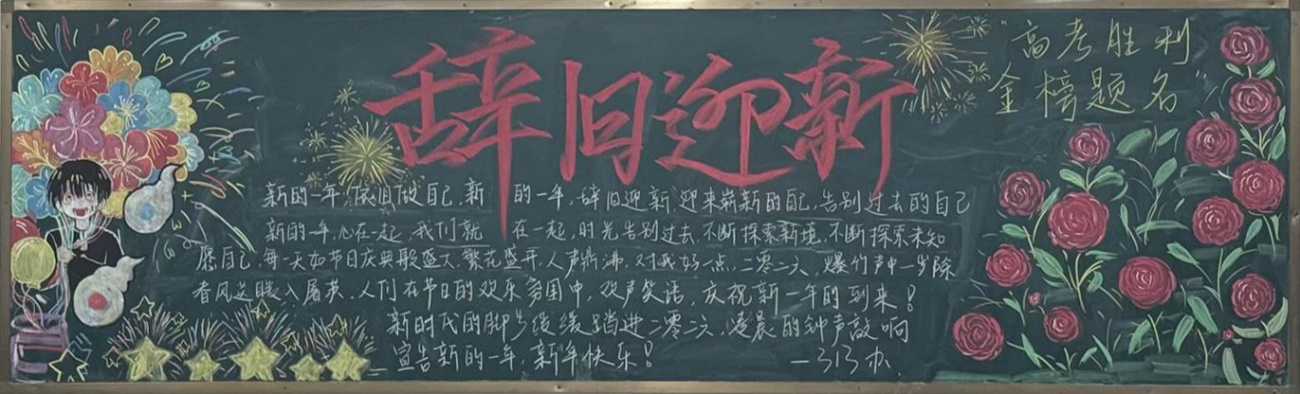 辞旧迎新
"高考胜利
金榜题名"
新的一年,依旧做自己,新的一年,辞旧迎新,迎来崭新的自己,告别过去的自己
新的一年,心在一起,我们就在一起,时光告别过去,不断探索新境,不断探索未知
愿自己,每一天如节日庆典般盛大,繁花盛开,人声鼎沸,对我好一点,二零二六,爆竹声中一岁除
春风送暖入屠苏,人们在节日的欢乐氛围中,欢声笑语,庆祝新一年的到来!
新时代的脚步缓缓踏进二零二六,凌晨的钟声敲响
宣告新的一年,新年快乐!
—313办